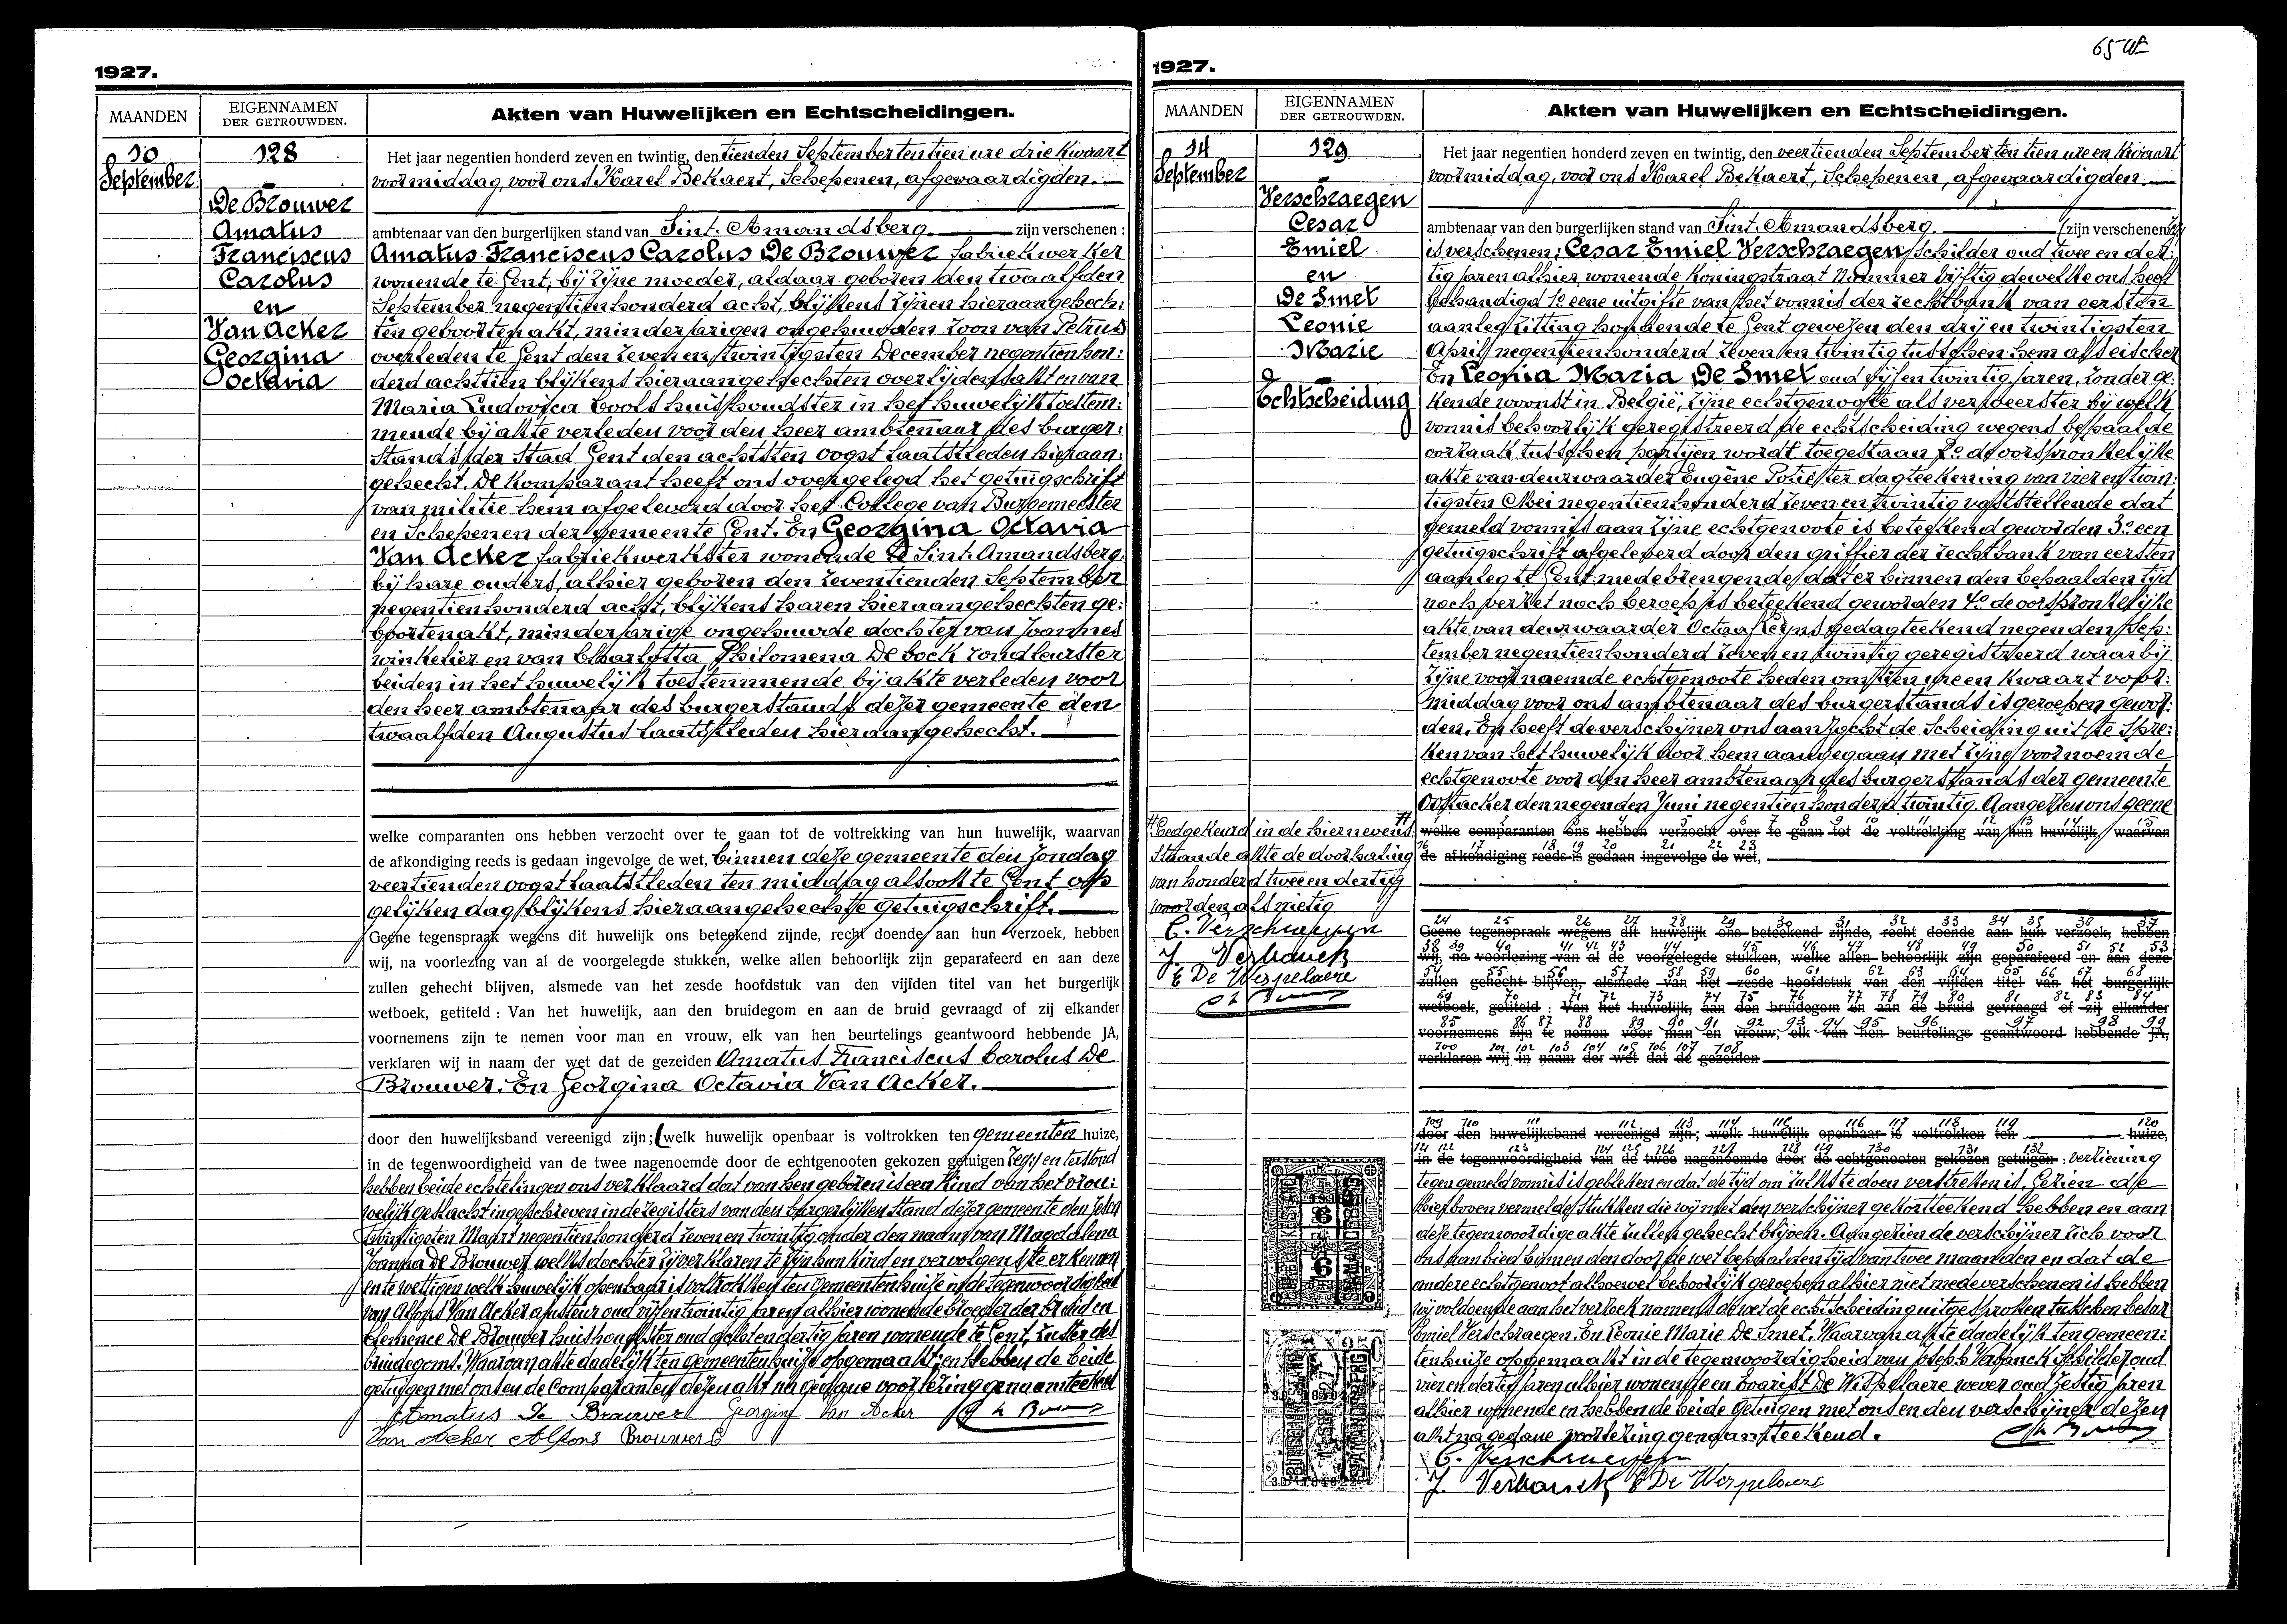 1927.
MAANDEN
EIGENNAMEN
DER GETROUWDEN.
Akten van Huwelijken en Echtscheidingen.
10
September
128
De Brouwer
Amatus
Franciscus
Carolus
en
Van Acker
Georgina
Octavia
Het jaar negentien honderd zeven en twintig, den tienden September ten tien ure drie kwaart
voormiddag, voor ons Karel Bekaert, Schepenen, afgevaardigden.
ambtenaar van den burgerlijken stand van Sint-Amandsberg. zijn verschenen :
Amatus Franciscus Carolus De Brouwer fabriekwerker
wonende te Gent, bij zijne moeder, aldaar geboren den twaalfden
September negentien honderd acht, blijkens zijnen hieraangehech:
ten geboortenakt, minderjarigen ongehuwden zoon van Petrus
overleden te Gent den zeven en twintigsten December negentien hon:
derd achttien blijkens hieraangehechten overlijdensakt en van
Maria Ludovica Cools huishoudster in het huwelijk toestem:
mende bij akte verleden voor den heer ambtenaar des burger:
stands der Stad Gent den achtsten oogst laatstleden hieraan:
gehecht. De komparant heeft ons overgelegd het getuigschrift
van militie hem afgeleverd door het College van Burgemeester
en Schepenen der gemeente Gent. En Georgina Octavia
Van Acker fabriekwerkster wonende te Sint-Amandsberg.
bij hare ouders, alhier geboren den zeventienden September
negentien honderd acht, blijkens haren hieraangehechten ge:
boortenakt, minderjarige ongehuwde dochter van Joannes
winkelier en van Charlotta Philomena De Cock rondleurster
beiden in het huwelijk toestemmende bij akte verleden voor
den heer ambtenaar des burgerstands dezer gemeente den
twaalfden Augustus laatstleden hieraangehecht.
welke comparanten ons hebben verzocht over te gaan tot de voltrekking van hun huwelijk, waarvan
de afkondiging reeds is gedaan ingevolge de wet, binnen deze gemeente den zondag
veertienden oogst laatstleden ten middag alsook te Gent op
gelijken dag blijkens hieraangehechte getuigschrift.
Geene tegenspraak wegens dit huwelijk ons beteekend zijnde, recht doende aan hun verzoek, hebben
wij, na voorlezing van al de voorgelegde stukken, welke allen behoorlijk zijn geparafeerd en aan deze
zullen gehecht blijven, alsmede van het zesde hoofdstuk van den vijfden titel van het burgerlijk
wetboek, getiteld : Van het huwelijk, aan den bruidegom en aan de bruid gevraagd of zij elkander
voornemens zijn te nemen voor man en vrouw, elk van hen beurtelings geantwoord hebbende JA,
verklaren wij in naam der wet dat de gezeiden Amatus Franciscus Carolus De
Brouwer. En Georgina Octavia Van Acker.
door den huwelijksband vereenigd zijn; (welk huwelijk openbaar is voltrokken ten gemeenten huize,
in de tegenwoordigheid van de twee nagenoemde door de echtgenooten gekozen getuigen
hebben beide echtelingen ons verklaard dat van hen geboren is een kind van het vrou:
welijk geslacht ingeschreven in de registers van den burgerlijken stand dezer gemeente den zesen
twintigsten Maart negentien honderd zeven en twintig onder den naam van Magdalena
Joanna De Brouwer welks dochter zij verklaren te zijn hun kind en vervolgens te erkennen
en te wettigen welk huwelijk openbaar is voltrokken ten gemeentenhuize in de tegenwoordigheid
van Alfons Van Acker ajusteur oud vijf en twintig jaren alhier wonende broeder der bruid en
Clemence De Brouwer huishoudster oud acht en dertig jaren wonende te Gent, zuster des
bruidegoms. Waarvan akte dadelijk ten gemeentenhuize opgemaakt; en hebben de beide
getuigen met ons en de Comparanten dezen akt na gedane voorlezing genaamteekend
Amatus De Brouwer Georgina Van Acker
Van Acker Alfons Brouwer C
1927.
MAANDEN
EIGENNAMEN
DER GETROUWDEN.
Akten van Huwelijken en Echtscheidingen.
14
September
129
Verschraegen
Cesar
Emiel
en
De Smet
Leonie
Marie
Echtscheiding
Het jaar negentien honderd zeven en twintig, den veertienden September ten tien ure en kwaart
voormiddag, voor ons Karel Bekaert, Schepenen, afgevaardigden.
ambtenaar van den burgerlijken stand van Sint-Amandsberg (zijn verschenen
is verschenen: Cesar Emiel Verschraegen, schilder oud twee en der:
tig jaren alhier wonende Koningstraat Nummer vijftig dewelke ons heeft
behandigd 1º eene uitgifte van het vonnis der rechtbank van eersten
aanleg zitting houdende te Gent gewezen den drij en twintigsten
April negentien honderd zeven en twintig tusschen hem als eischer
En Leonia Maria De Smet oud vijf en twintig jaren, zonder ge:
kende woonst in België, zijne echtgenoote als verweerster bij welk
vonnis behoorlijk geregistreerd de echtscheiding wegens bepaalde
oorzaak tusschen partijen wordt toegestaan 2º de oorspronkelijke
akte van deurwaarder Eugène Potiester dagteekening van vier en twin:
tigsten Mei negentien honderd zeven en twintig vaststellende dat
gemeld vonnis aan zijne echtgenoote is beteekend geworden 3º een
getuigschrift afgeleverd door den griffier der rechtbank van eersten
aanleg te Gent medebrengende dat er binnen den bepaalden tijd
noch verzet noch beroep is beteekend geworden 4º de oorspronkelijke
akte van deurwaarder Octaaf Leyns gedagteekend negenden Sep:
tember negentien honderd zeven en twintig geregistreerd waarbij
zijne voornaemde echtgenoote heden om tien ure en kwaart voor:
middag voor ons ambtenaar des burgerstands is geroepen gewor:
den. En heeft de verschijner ons aanzocht de scheiding uit te spre:
ken van het huwelijk door hem aangegaan met zijne voornoemde
echtgenoote voor den heer ambtenaar des burgerstands der gemeente
Oostacker den negenden Juni negentien honderd twintig. Aangezien ons geene
Goedgekeurd in de hiernevens
staande akte de doorhaling
van honderd twee en dertig
woorden als nietig
C. Verschraegen
J. Verbanck
E De Wispelaere
welke comparanten ons hebben verzocht over te gaan tot de voltrekking van hun huwelijk, waarvan
de afkondiging reeds is gedaan ingevolge de wet,
Geene tegenspraak wegens dit huwelijk ons beteekend zijnde, recht doende aan hun verzoek, hebben
wij, na voorlezing van al de voorgelegde stukken, welke allen behoorlijk zijn geparafeerd en aan deze
zullen gehecht blijven, alsmede van het zesde hoofdstuk van den vijfden titel van het burgerlijk
wetboek, getiteld : Van het huwelijk, aan den bruidegom en aan de bruid gevraagd of zij elkander
voornemens zijn te nemen voor man en vrouw, elk van hen beurtelings geantwoord hebbende JA,
verklaren wij in naam der wet dat de gezeiden
door den huwelijksband vereenigd zijn; welk huwelijk openbaar is voltrokken ten huize,
in de tegenwoordigheid van de twee nagenoemde door de echtgenooten gekozen getuigen :
tegen gemeld vonnis is gebleken en dat de tijd om zulks te doen verstreken is. Gezien de
hierboven vermelde stukken die wij met den verschijner gekortteekend hebben en aan
deze tegenwoordige akte zullen gehecht blijven. Aangezien de verschijner zich voor
ons aanbied binnen den door de wet bepaalden tijd van twee maanden en dat de
andere echtgenoot alhoewel behoorlijk geroepen alhier niet mede verschenen is hebben
wij voldoende aan het verzoek namens de wet de echtscheiding uitgesproken tusschen Cesar
Emiel Verschraegen. En Leonie Marie De Smet. Waarvan akte dadelijk ten gemeen:
tenhuize opgemaakt in de tegenwoordigheid van Joseph Verbanck schilder oud
vier en dertig jaren alhier wonende en Evarist De Wispelaere wever oud zestig jaren
alhier wonende en hebben de beide getuigen met ons en den verschijner dezen
akt na gedane voorlezing genaamteekend.
C. Verschraegen
J. Verbanck E De Wispelaere